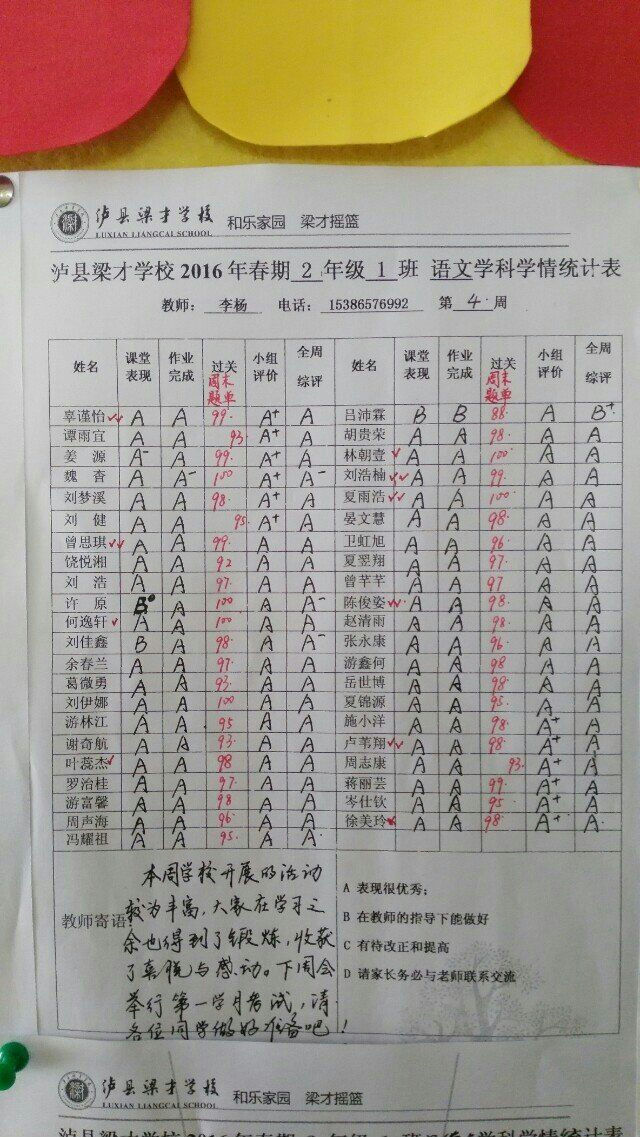 泸县梁才学校 和乐家园 梁才摇篮
LUXIAN LIANGCAI SCHOOL
泸县梁才学校2016年春期 2 年级 1 班 语文学科学情统计表
教师： 李杨 电话： 15386576992 第 4 周
姓名 课堂表现 作业完成 过关 周末题单 小组评价 全周综评 姓名 课堂表现 作业完成 过关 周末题单 小组评价 全周综评
辜谨怡 A A 99. A+ A 吕沛霖 B B 88. A B+
谭雨宜 A A 93 A+ A 胡贵荣 A A 98. A A
姜 源 A- A 99. A+ A 林朝壹 A A 100 A A
魏 杳 A A- 100 A+ A- 刘浩楠 A A 99. A A
刘梦溪 A A 98. A+ A 夏雨浩 A A 100 A A
刘 健 A A 95. A+ A 晏文慧 A A 98. A A
曾思琪 A A 99. A A 卫虹旭 A A 96. A A
饶悦湘 A A 92 A A 夏翌翔 A A 97. A A
刘 浩 A A 97. A A 曾芊芊 A A 97 A A
许 原 B A 100 A A- 陈俊姿 A A 98. A A
何逸轩 A A 100 A A 赵清雨 A A 98. A A
刘佳鑫 B A 98. A A- 张永康 A A 96. A A
余春兰 A A 97. A A 游鑫何 A A 98 A A
葛微勇 A A 93. A A 岳世博 A A 98. A A
刘伊娜 A A 100 A A 夏锦源 A A 95. A A
游林江 A A 95 A A 施小洋 A A 98. A+ A
谢奇航 A A 93. A A 卢苇翔 A A 98. A+ A
叶蕊杰 A A 98 A A 周志康 A A 93. A+ A
罗治桂 A A 97. A A 蒋丽芸 A A 99. A+ A
游富馨 A A 98 A A 岑仕钦 A A 95. A+ A
周声海 A A 96. A A 徐美玲 A A 98. A+ A
冯耀祖 A A 95. A A
教师寄语：
本周学校开展的活动
较为丰富，大家在学习之
余也得到了锻炼，收获
了喜悦与感动。下周会
举行第一学月考试，请
各位同学做好准备吧！
A 表现很优秀；
B 在教师的指导下能做好
C 有待改正和提高
D 请家长务必与老师联系交流
泸县梁才学校 和乐家园 梁才摇篮
LUXIAN LIANGCAI SCHOOL
泸县梁才学校2016年春期 2 年级 1 班 语文学科学情统计表